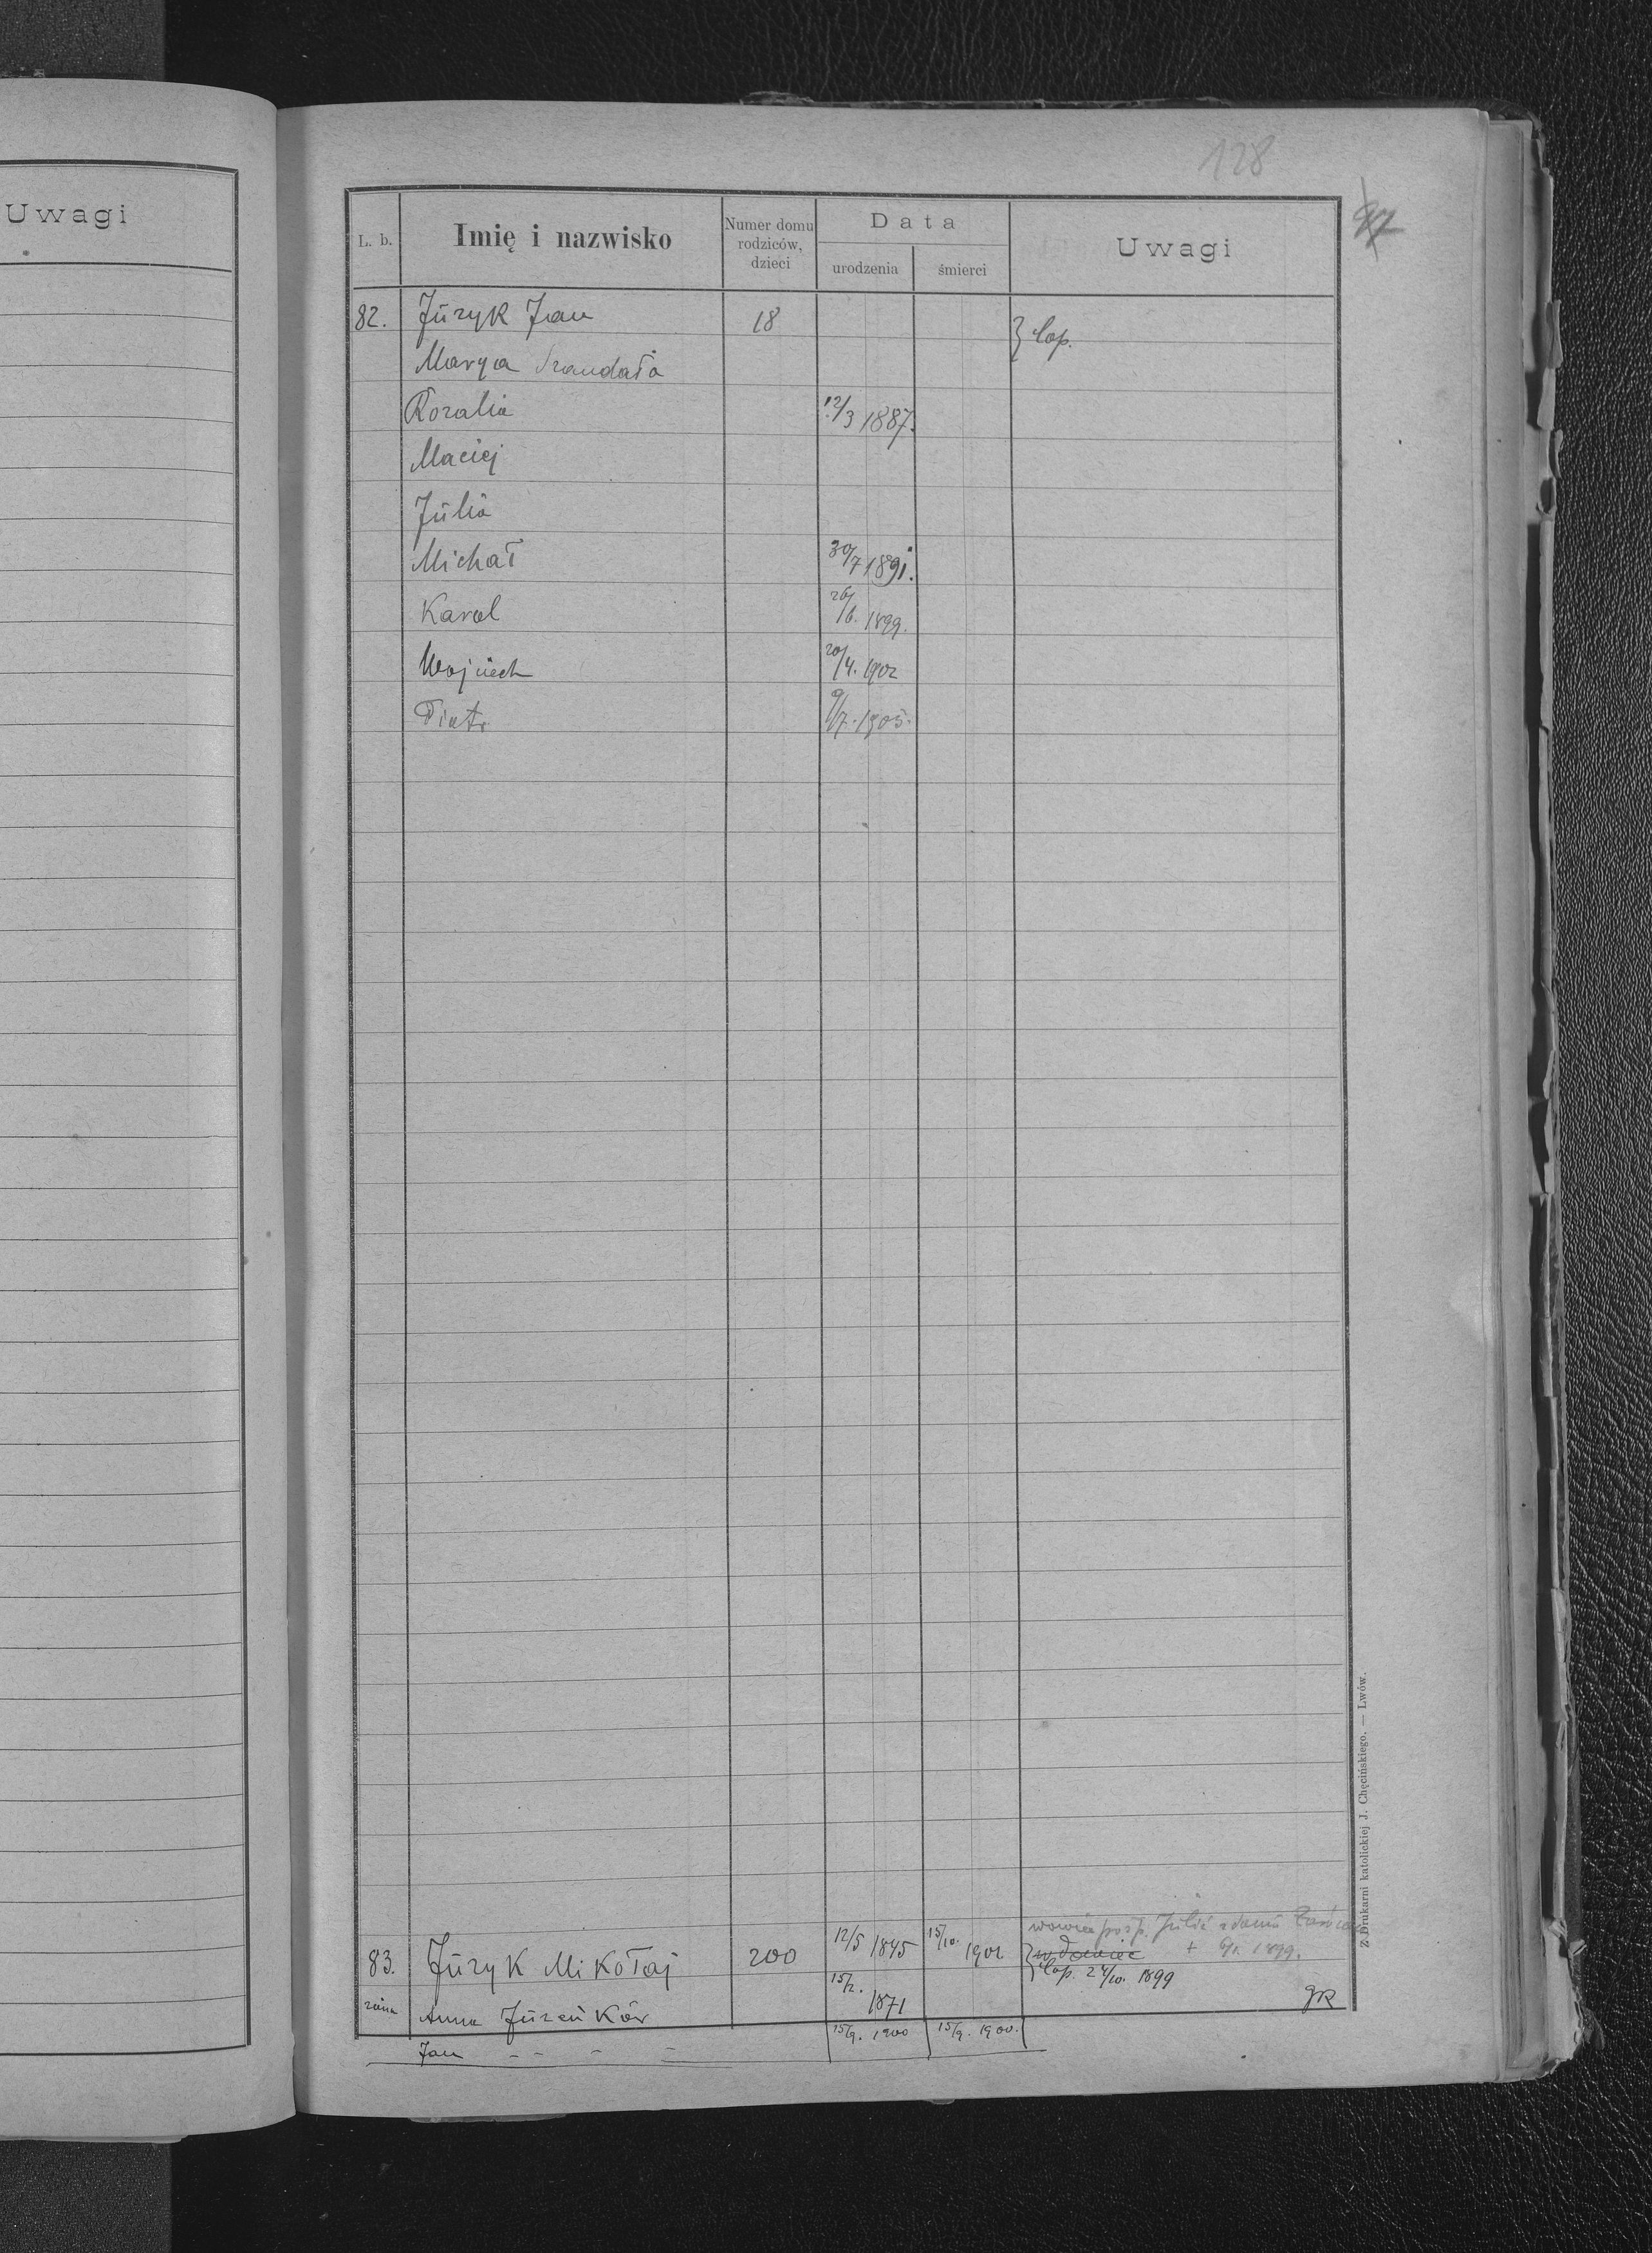 Uwagi
128
L. b.
Imię i nazwisko
Numer domu rodziców, dzieci
Data
urodzenia
śmierci
Uwagi
82. Jŭzyk Jan 18 } Cop.
Marya Szandała
Rozalia 12/3 1887.
Maciej
Jŭlia
Michał 30/7 1891.
Karol 26/6. 1899.
Wojciech 20/4. 1902
Piotr 9/7. 1905.
wowiec po ś.p. Jŭlii z domŭ
83. Jŭzyk Mikołaj 200 12/5 1845 15/10. 1901 wdowiec + 6/1. 1899.
} Cop. 24/10. 1899
Anna 15/2. 1871 gR
Jan - - - - 15/9. 1900 15/9. 1900.
Z Drukarni katolickiej J. Chęcińskiego. — Lwów.